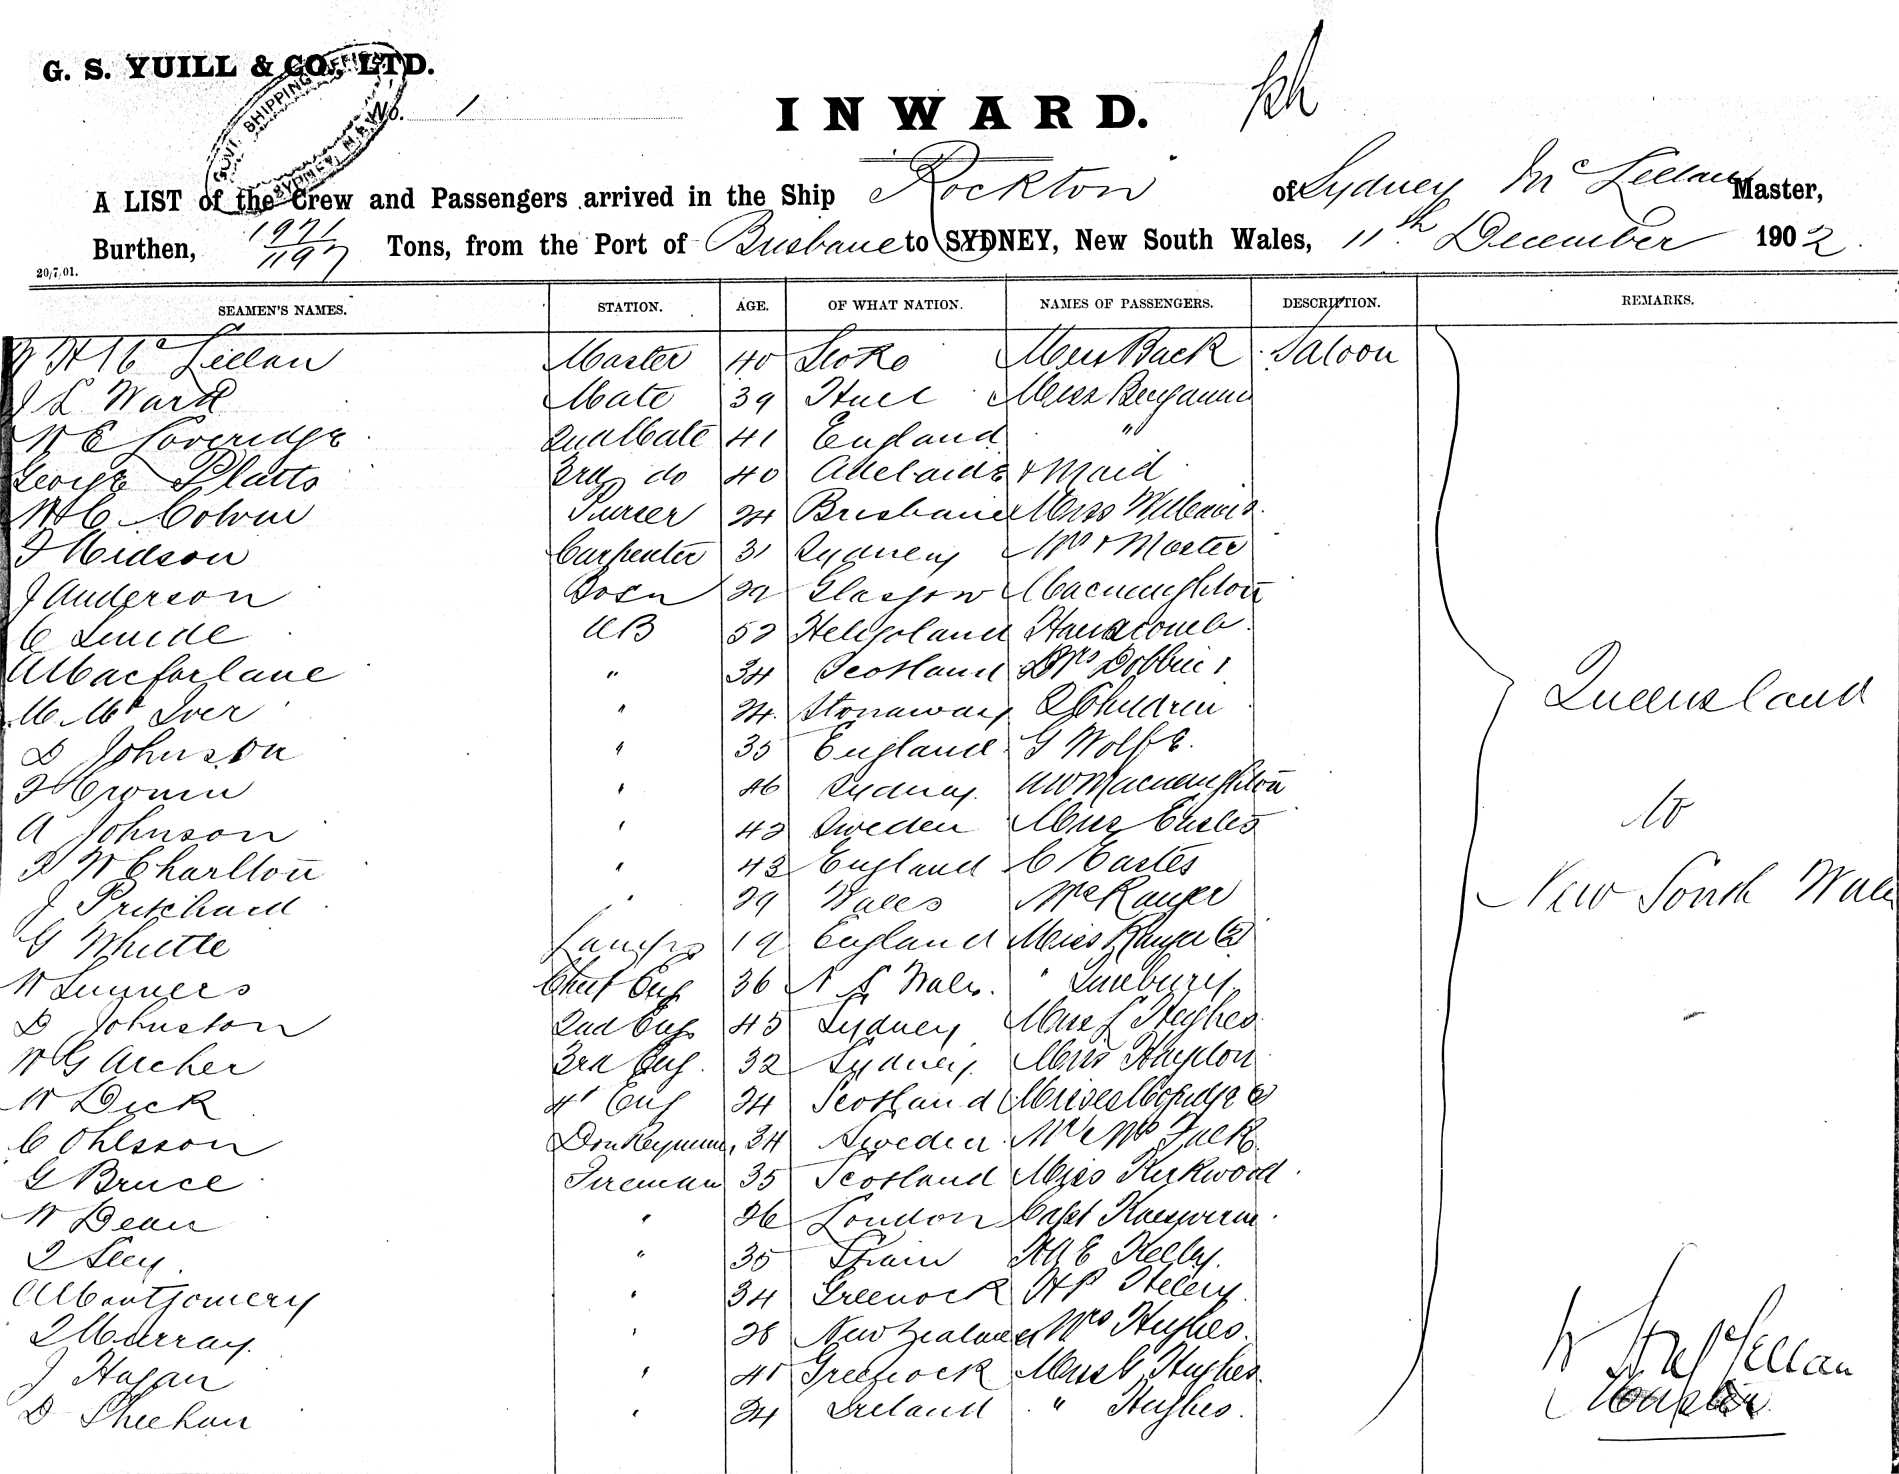 G. S. YUILL & CO. LTD.
GOVT. SHIPPING OFFICE SYDNEY, N.S.W.
No. 1
INWARD.
A LIST of the Crew and Passengers arrived in the Ship Rockton of Sydney Mc Lellan Master,
Burthen, 1971 / 1197 Tons, from the Port of Brisbane to SYDNEY, New South Wales, 11th December 1902.
20/7/01.
SEAMEN'S NAMES. STATION. AGE. OF WHAT NATION. NAMES OF PASSENGERS. DESCRIPTION. REMARKS.
W H Mc Lellan Master 40 Stoke Miss Back Saloon
J L Ward Mate 39 Hull Miss Benjamin
W E Loveridge 2nd Mate 41 England "
George Platts 3rd do 40 Adelaide & Maid
W C Colvin Purser 24 Brisbane Miss Williams
F Hidson Carpenter 31 Sydney Mrs & Master
J Anderson Bosn Glasgow Macnaughton
C Luide AB 52 Heligoland Hanscomb
A Macfarlane " 34 Scotland Mrs Dobbin &
M Mc Iver " 24 Stornaway 2 Children
D Johnson " 35 England G Wolfe.
F Cronin " 46 Sydney. A W Macnaughton
A Johnson " 42 Sweden Miss Eastes
F W Charlton " 43 England C Eastes
J Pritchard " 29 Wales Mr Ranger
G Whittle Lamps 19 England Miss Ranger (2)
W Summers Chief Eng 36 N S Wales. "
D Johnston 2nd Eng 45 Sydney Miss L Hughes
W G Archer 3rd Eng. 32 Sydney. Miss Haydon
W Dick 4th Eng 24 Scotland Misses (2)
C Ohlsson Donkeyman 34 Sweden Mr & Mrs Tuck
G Bruce Fireman 35 Scotland Miss Kirkwood
W Dean " 26 London Capt
" 35 Spain H E Kelly.
A Montgomery " 34 Greenock H P Heley
J Murray " 28 New Zealand Mrs Hughes.
J Hagan " 41 Greenock Miss G Hughes.
D Sheehan " 24 Ireland " Hughes.
Queensland
to
New South Wales
W H McLellan
Master